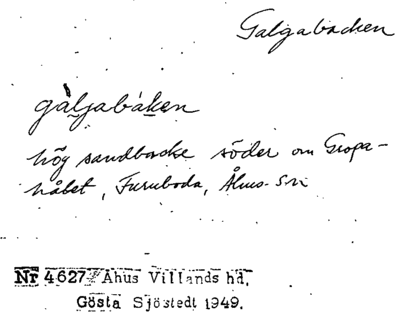 Galgabacken
gàljabàken
hög sandbacke söder om Gropa-
hålet, Furuboda, Åhus sn
Nr 4627 Åhus Villands hd.
Gösta Sjöstedt 1949.